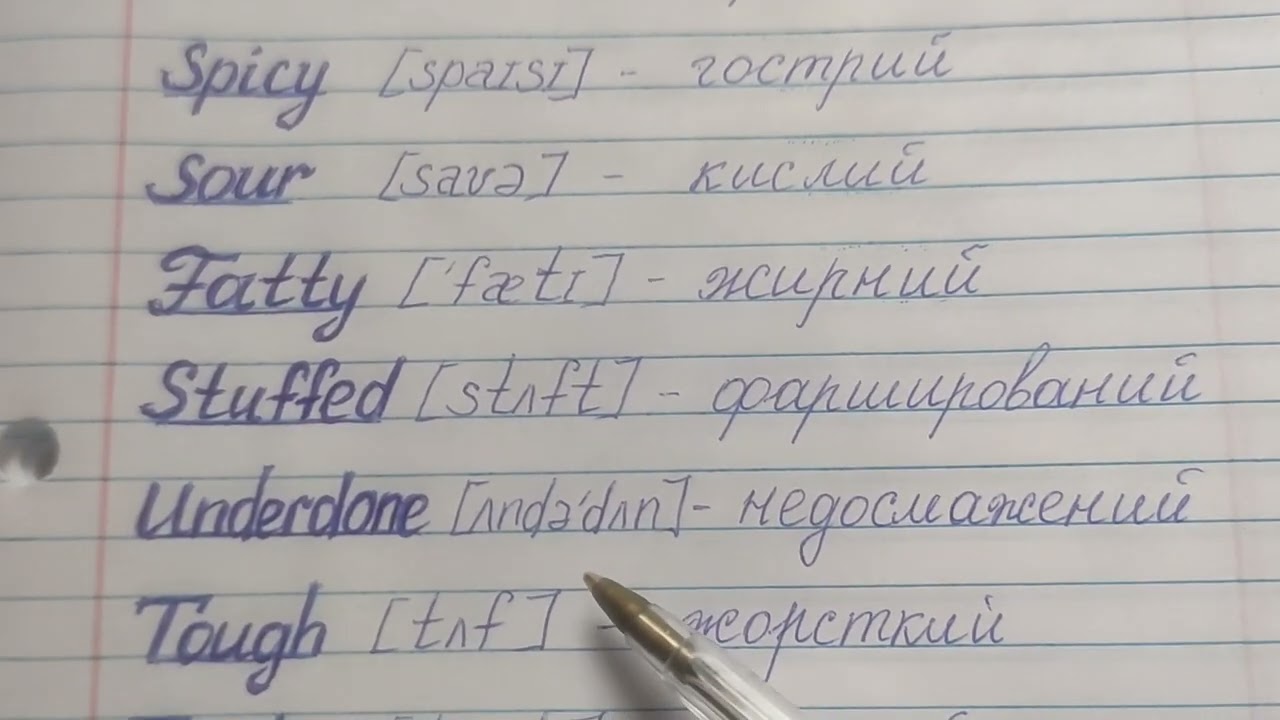 Spicy [spaɪsɪ] - гострий
Sour [saʊə] - кислий
Fatty ['fætɪ] - жирний
Stuffed [stʌft] - фарширований
Underdone [ʌndə'dʌn] - недосмажений
Tough [tʌf] - жорсткий